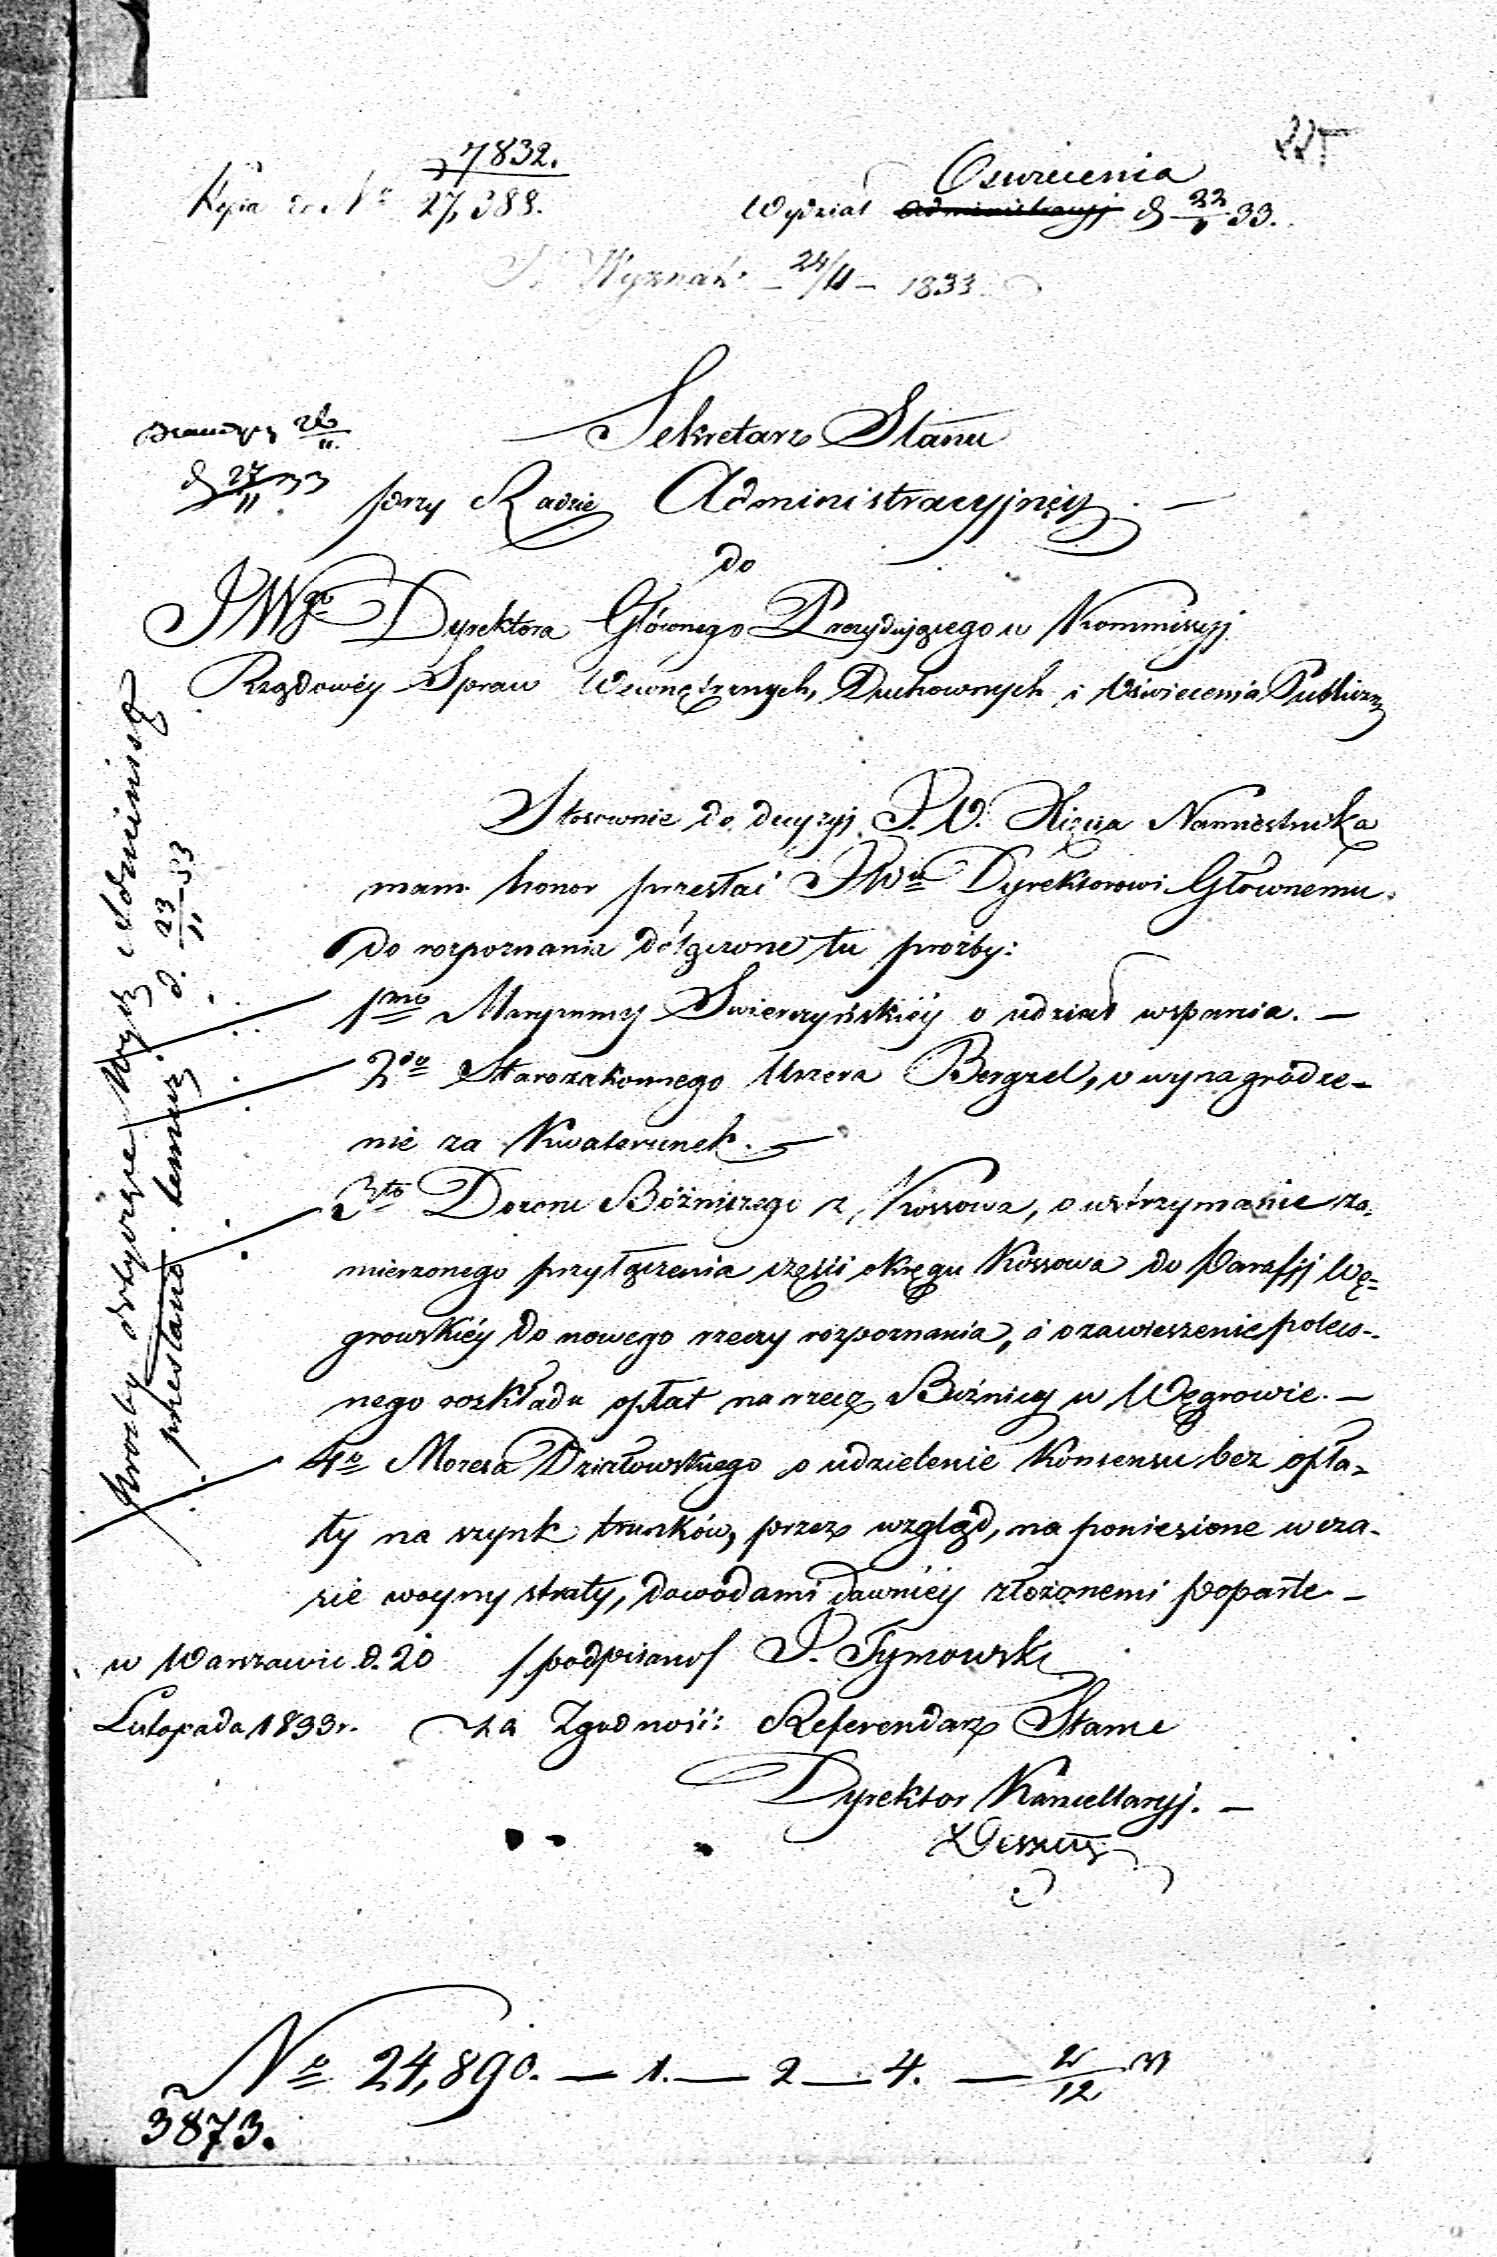 225
7832.
Kopia do Nr 27,388.
Oswiecenia
Wydział Administracyj d 22 33.
Wyznań 24/11 – 1833
26/11
d 27/11 33
Sekretarz Stanu
przy Radzie Administracyjnéy. –
do
JWgo Dyrektora Głównego Prezydującego w Kommissyj
Rządowéy Spraw Wewnętrznych, Duchownych i Oświecenia Publiczn
Stosownie do decyzyj J. O. Xięcia Namiestnika
mam honor przesłać JWu Dyrektorowi Głównemu
do rozpoznania dołączone tu prożby:
1mo Maryanny Swierczyńskiéy o udział wsparcia. –
2do Starozakonnego Uszera Bergzel, o wynagrodze-
nie za Kwaterunek. –
3tio Dozoru Bóżniczego z Kossowa, o wstrzymanie za-
mierzonego przyłączenia części okręgu Kossowa do Parafij Wę-
growskiéy do nowego rzeczy rozpoznania, i o zawieszenie poleco-
nego rozkładu opłat na rzecz Bóżnicy w Węgrowie. –
4o Mozesa Działowskiego o udzielenie Konsensu bez opła-
ty na szynk trunków, przez wzgląd, na poniesione w cza-
sie woyny straty, dowodami dawniéy złożonemi poparte –
w Warszawie d. 20 /podpisano/ J. Tymowski
Listopada 1833r. Za Zgodność: Referendarz Stanu
Dyrektor Kancellaryj. –
prożby dotyczące Wydz Administ
przesłano temuż d. 23/11 33
No 24,890. – 1. – 2 – 4. – 2/12 33
3873.